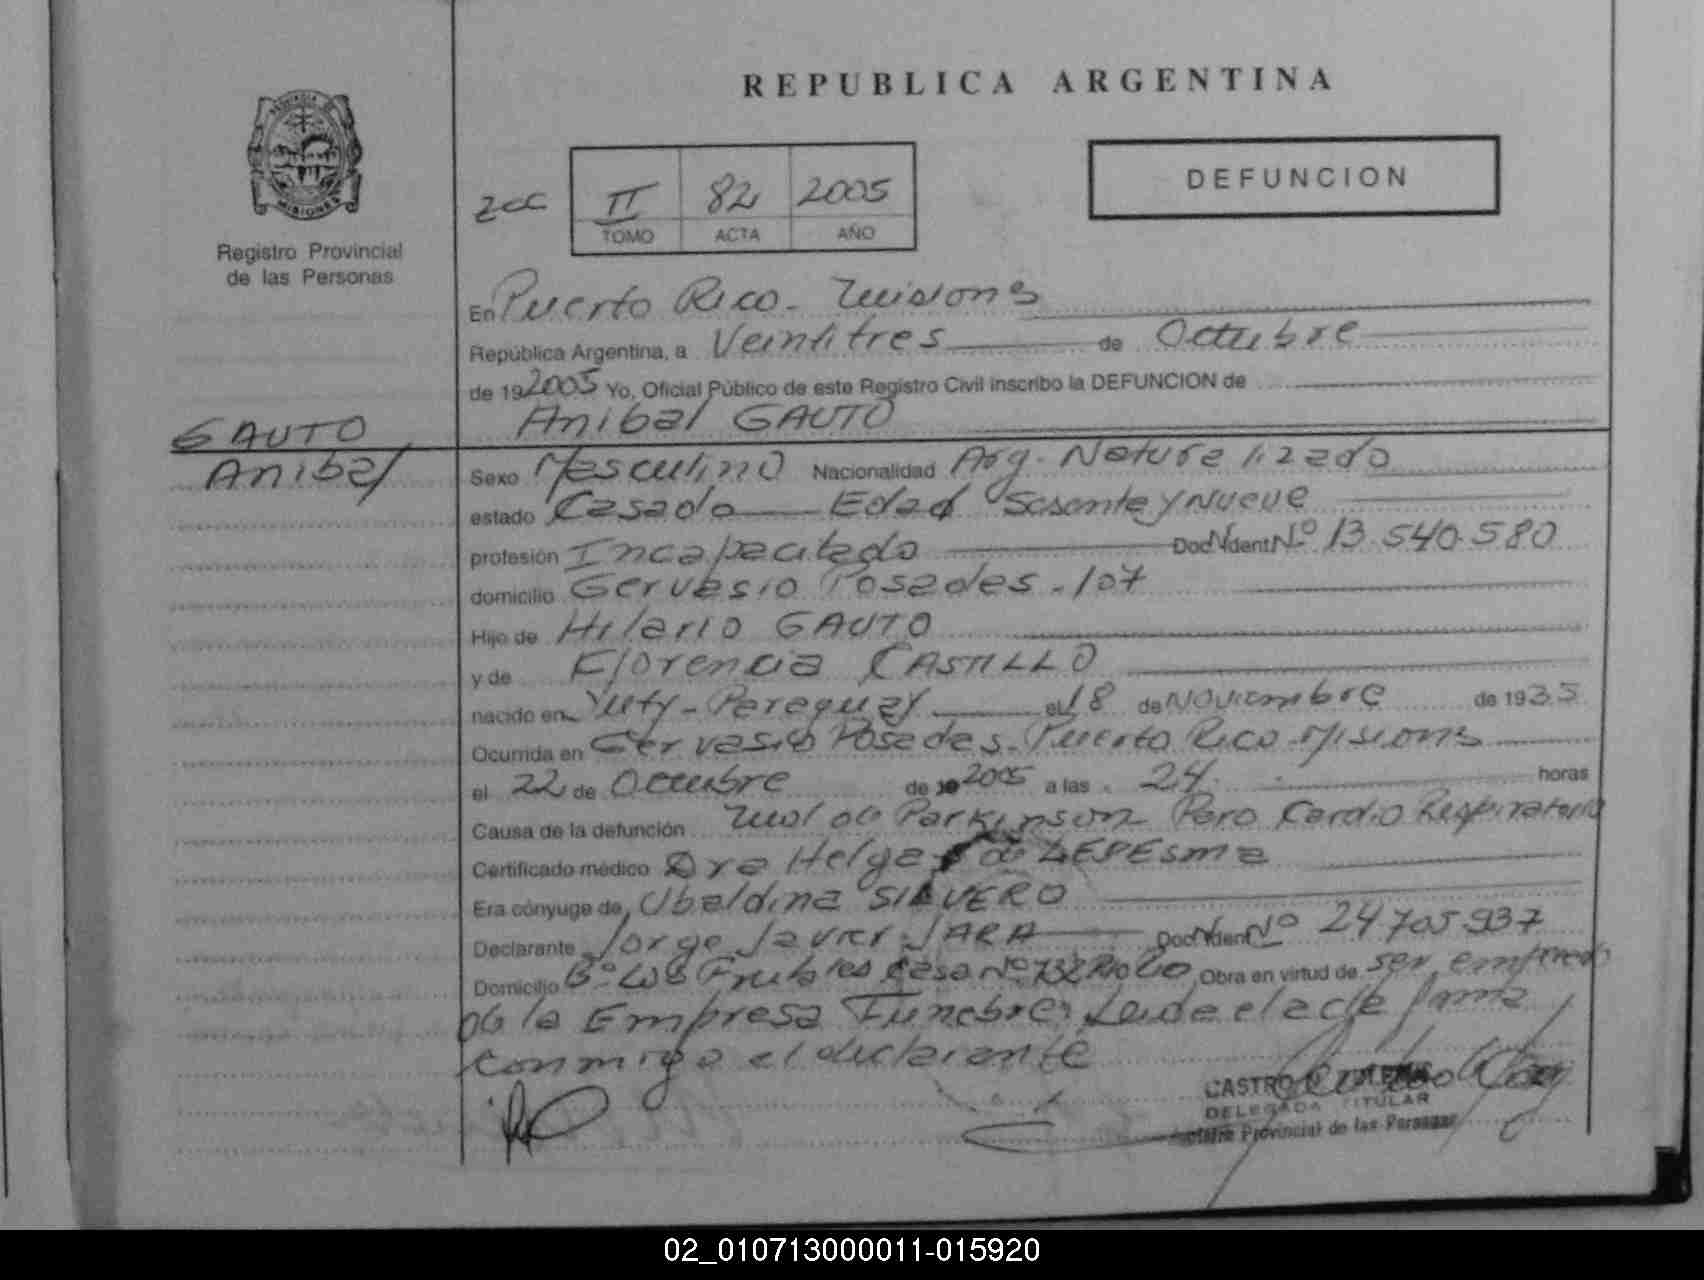 REPUBLICA ARGENTINA
PROVINCIA DE
MISIONES
Registro Provincial
de las Personas
DEFUNCION
II 82 2005
TOMO ACTA AÑO
En Puerto Rico - Misiones
República Argentina, a Veintitres de Octubre
de 19 2005 Yo, Oficial Público de este Registro Civil inscribo la DEFUNCION de
Anibal GAUTO
GAUTO
Anibal
Sexo Masculino Nacionalidad Arg. Naturalizado
estado Casado Edad Sesenta y Nueve
profesión Incapacitado Doc. Ident. Nº 13.540.580
domicilio Gervasio Posadas - 107
Hijo de Hilario GAUTO
y de Florencia CASTILLO
nacido en Yuty - Paraguay el 18 de Noviembre de 1935
Ocurrida en Gervasio Posadas - Puerto Rico - Misiones
el 22 de Octubre de 2005 a las 24 horas
Causa de la defunción Mal de Parkinson Paro Cardio Respiratorio
Certificado médico Dra Helga de LEDESma
Era cónyuge de Ubaldina SILVERO
Declarante Jorge Javier JARA Doc. Ident. Nº 24.705.937
Domicilio Bº Los Frutales Casa Nº 132 Obra en virtud de ser empleado
de la Empresa Funebre. Leida el acta firma
conmigo el declarante
CASTRO
DELEGADA TITULAR
Registro Provincial de las Personas
02_010713000011-015920